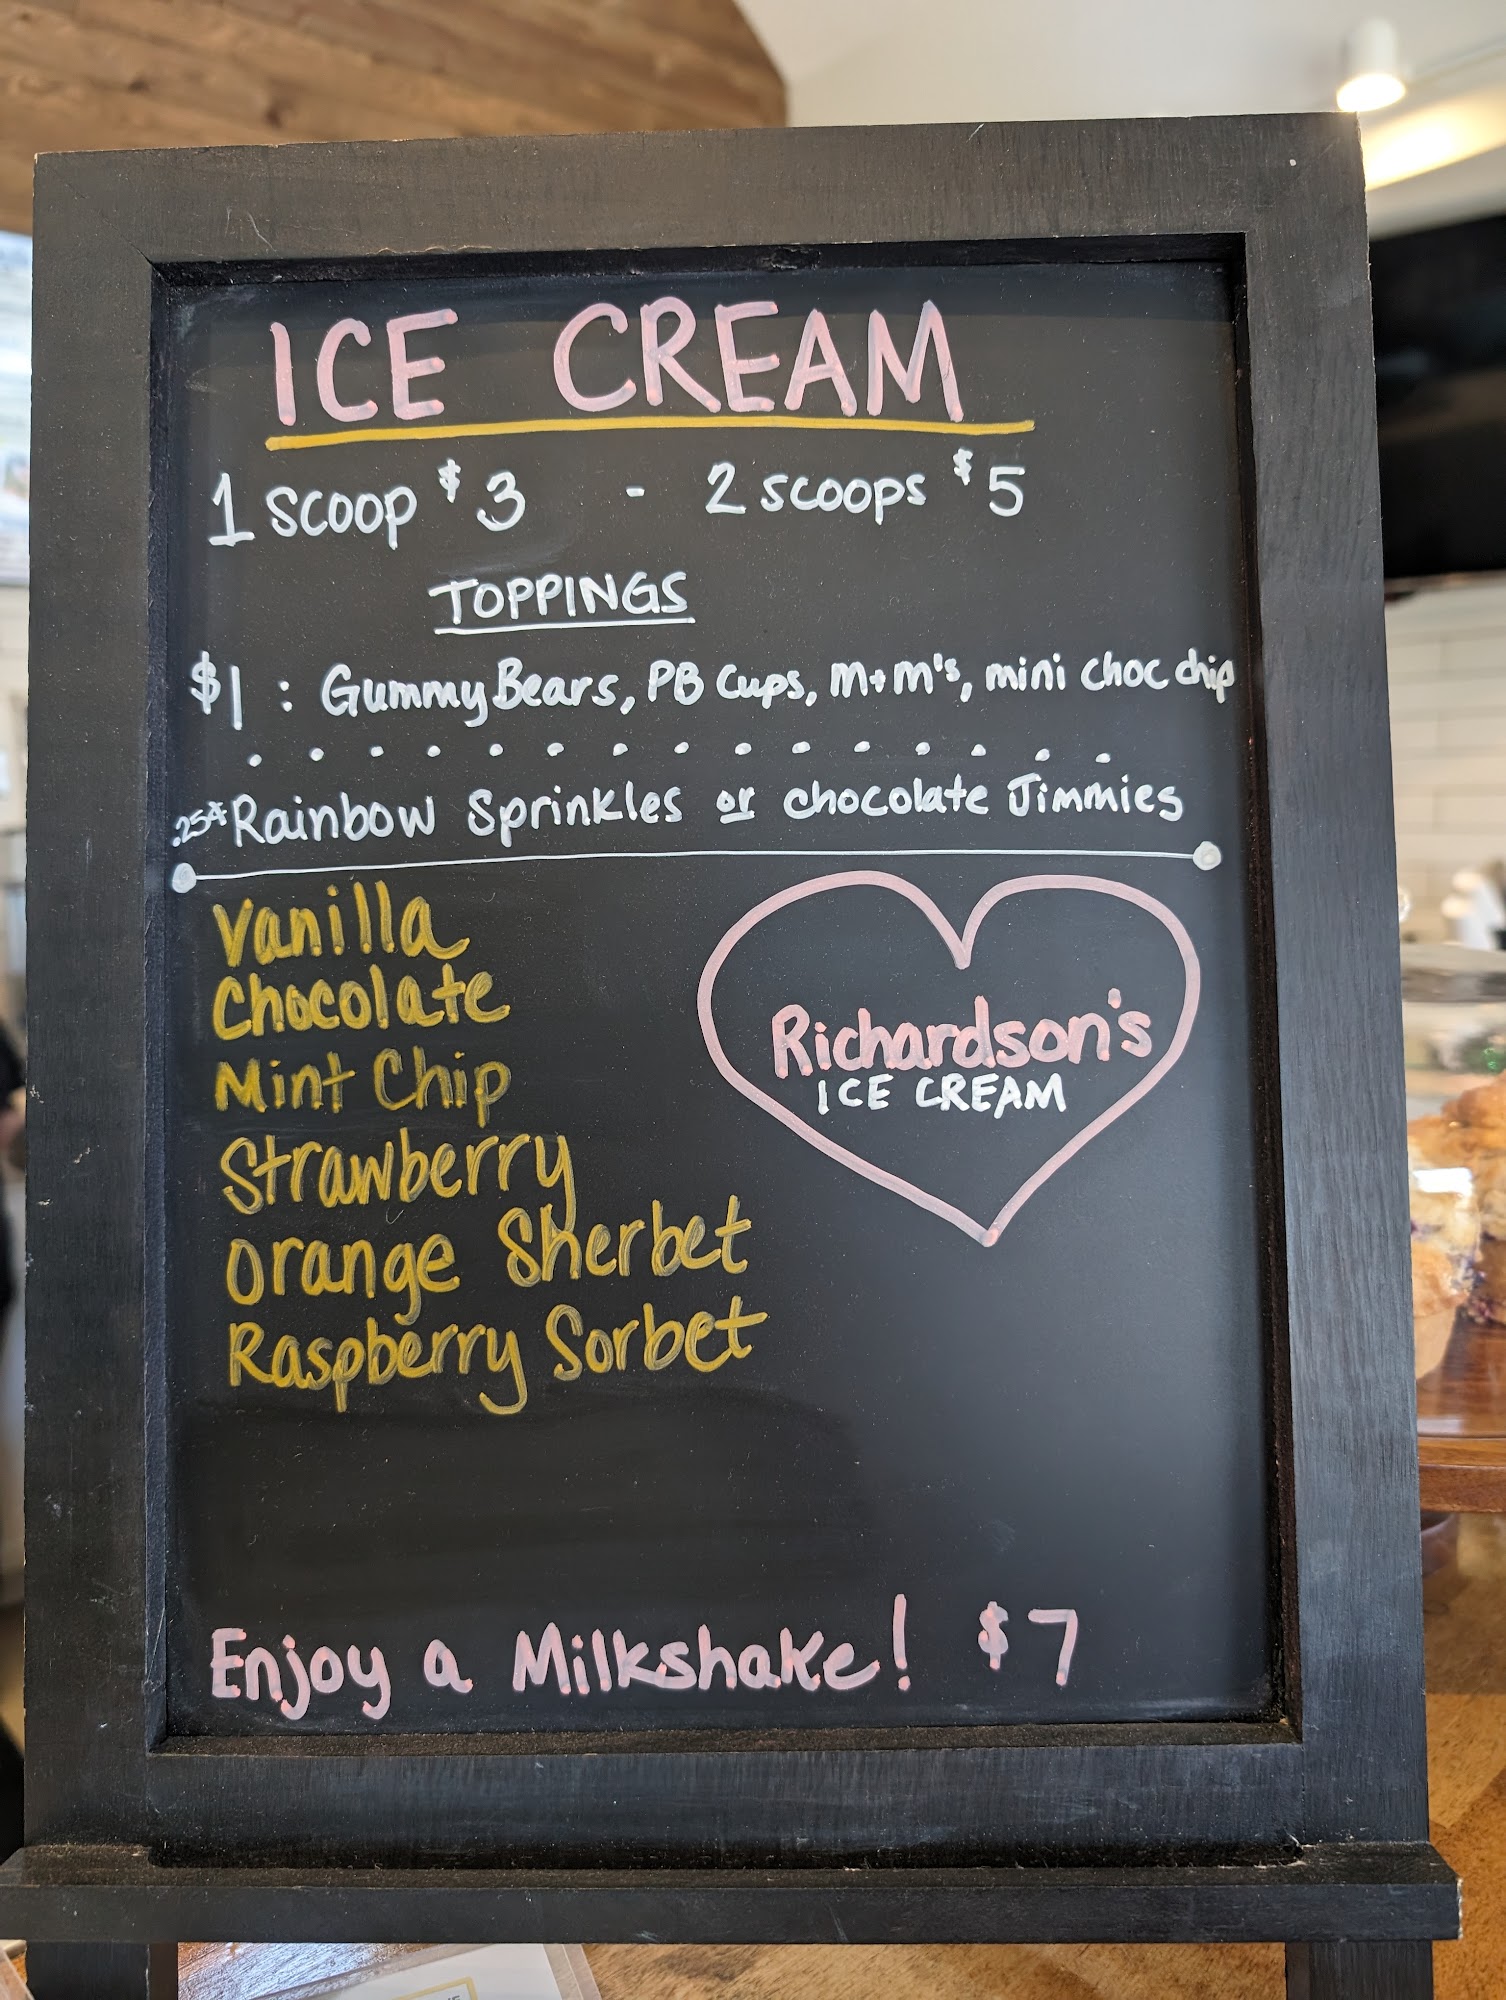 ICE CREAM
1 scoop $3 - 2 scoops $5
TOPPINGS
$1 : Gummy Bears, PB Cups, M+M's, mini choc chip
.25¢ Rainbow Sprinkles or chocolate Jimmies
Vanilla
Chocolate
Mint Chip
Strawberry
Orange Sherbet
Raspberry Sorbet
Richardson's
ICE CREAM
Enjoy a Milkshake! $7